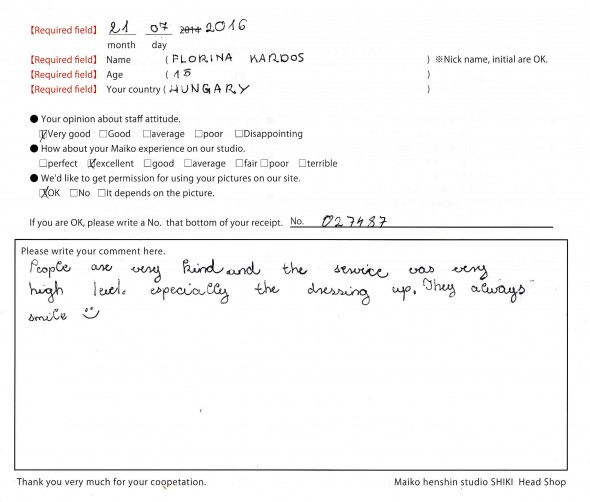 【Required field】 21 07 2014 2016
month day
【Required field】 Name ( FLORINA KARDOS ) ※Nick name, initial are OK.
【Required field】 Age ( 18 )
【Required field】 Your country ( HUNGARY )
● Your opinion about staff attitude.
☒Very good □Good □average □poor □Disappointing
● How about your Maiko experience on our studio.
□perfect ☒excellent □good □average □fair □poor □terrible
● We'd like to get permission for using your pictures on our site.
☒OK □No □It depends on the picture.
If you are OK, please write a No. that bottom of your receipt. No. 027487
Please write your comment here.
People are very kind and the service was very
high level. especially the dressing up. They always
smile ☺
Thank you very much for your coopetation. Maiko henshin studio SHIKI Head Shop